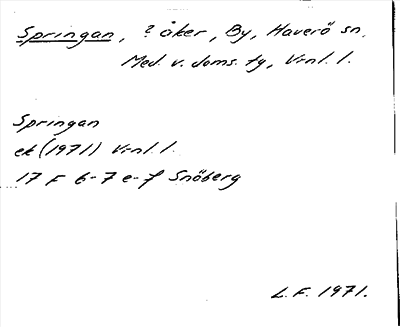 Springan, ? åker, By, Haverö sn,
Med. v. doms. fg, Vnl. l.
Springan
ek (1971) Vnl. l.
17 F 6-7 e-f Snöberg
L.F. 1971.